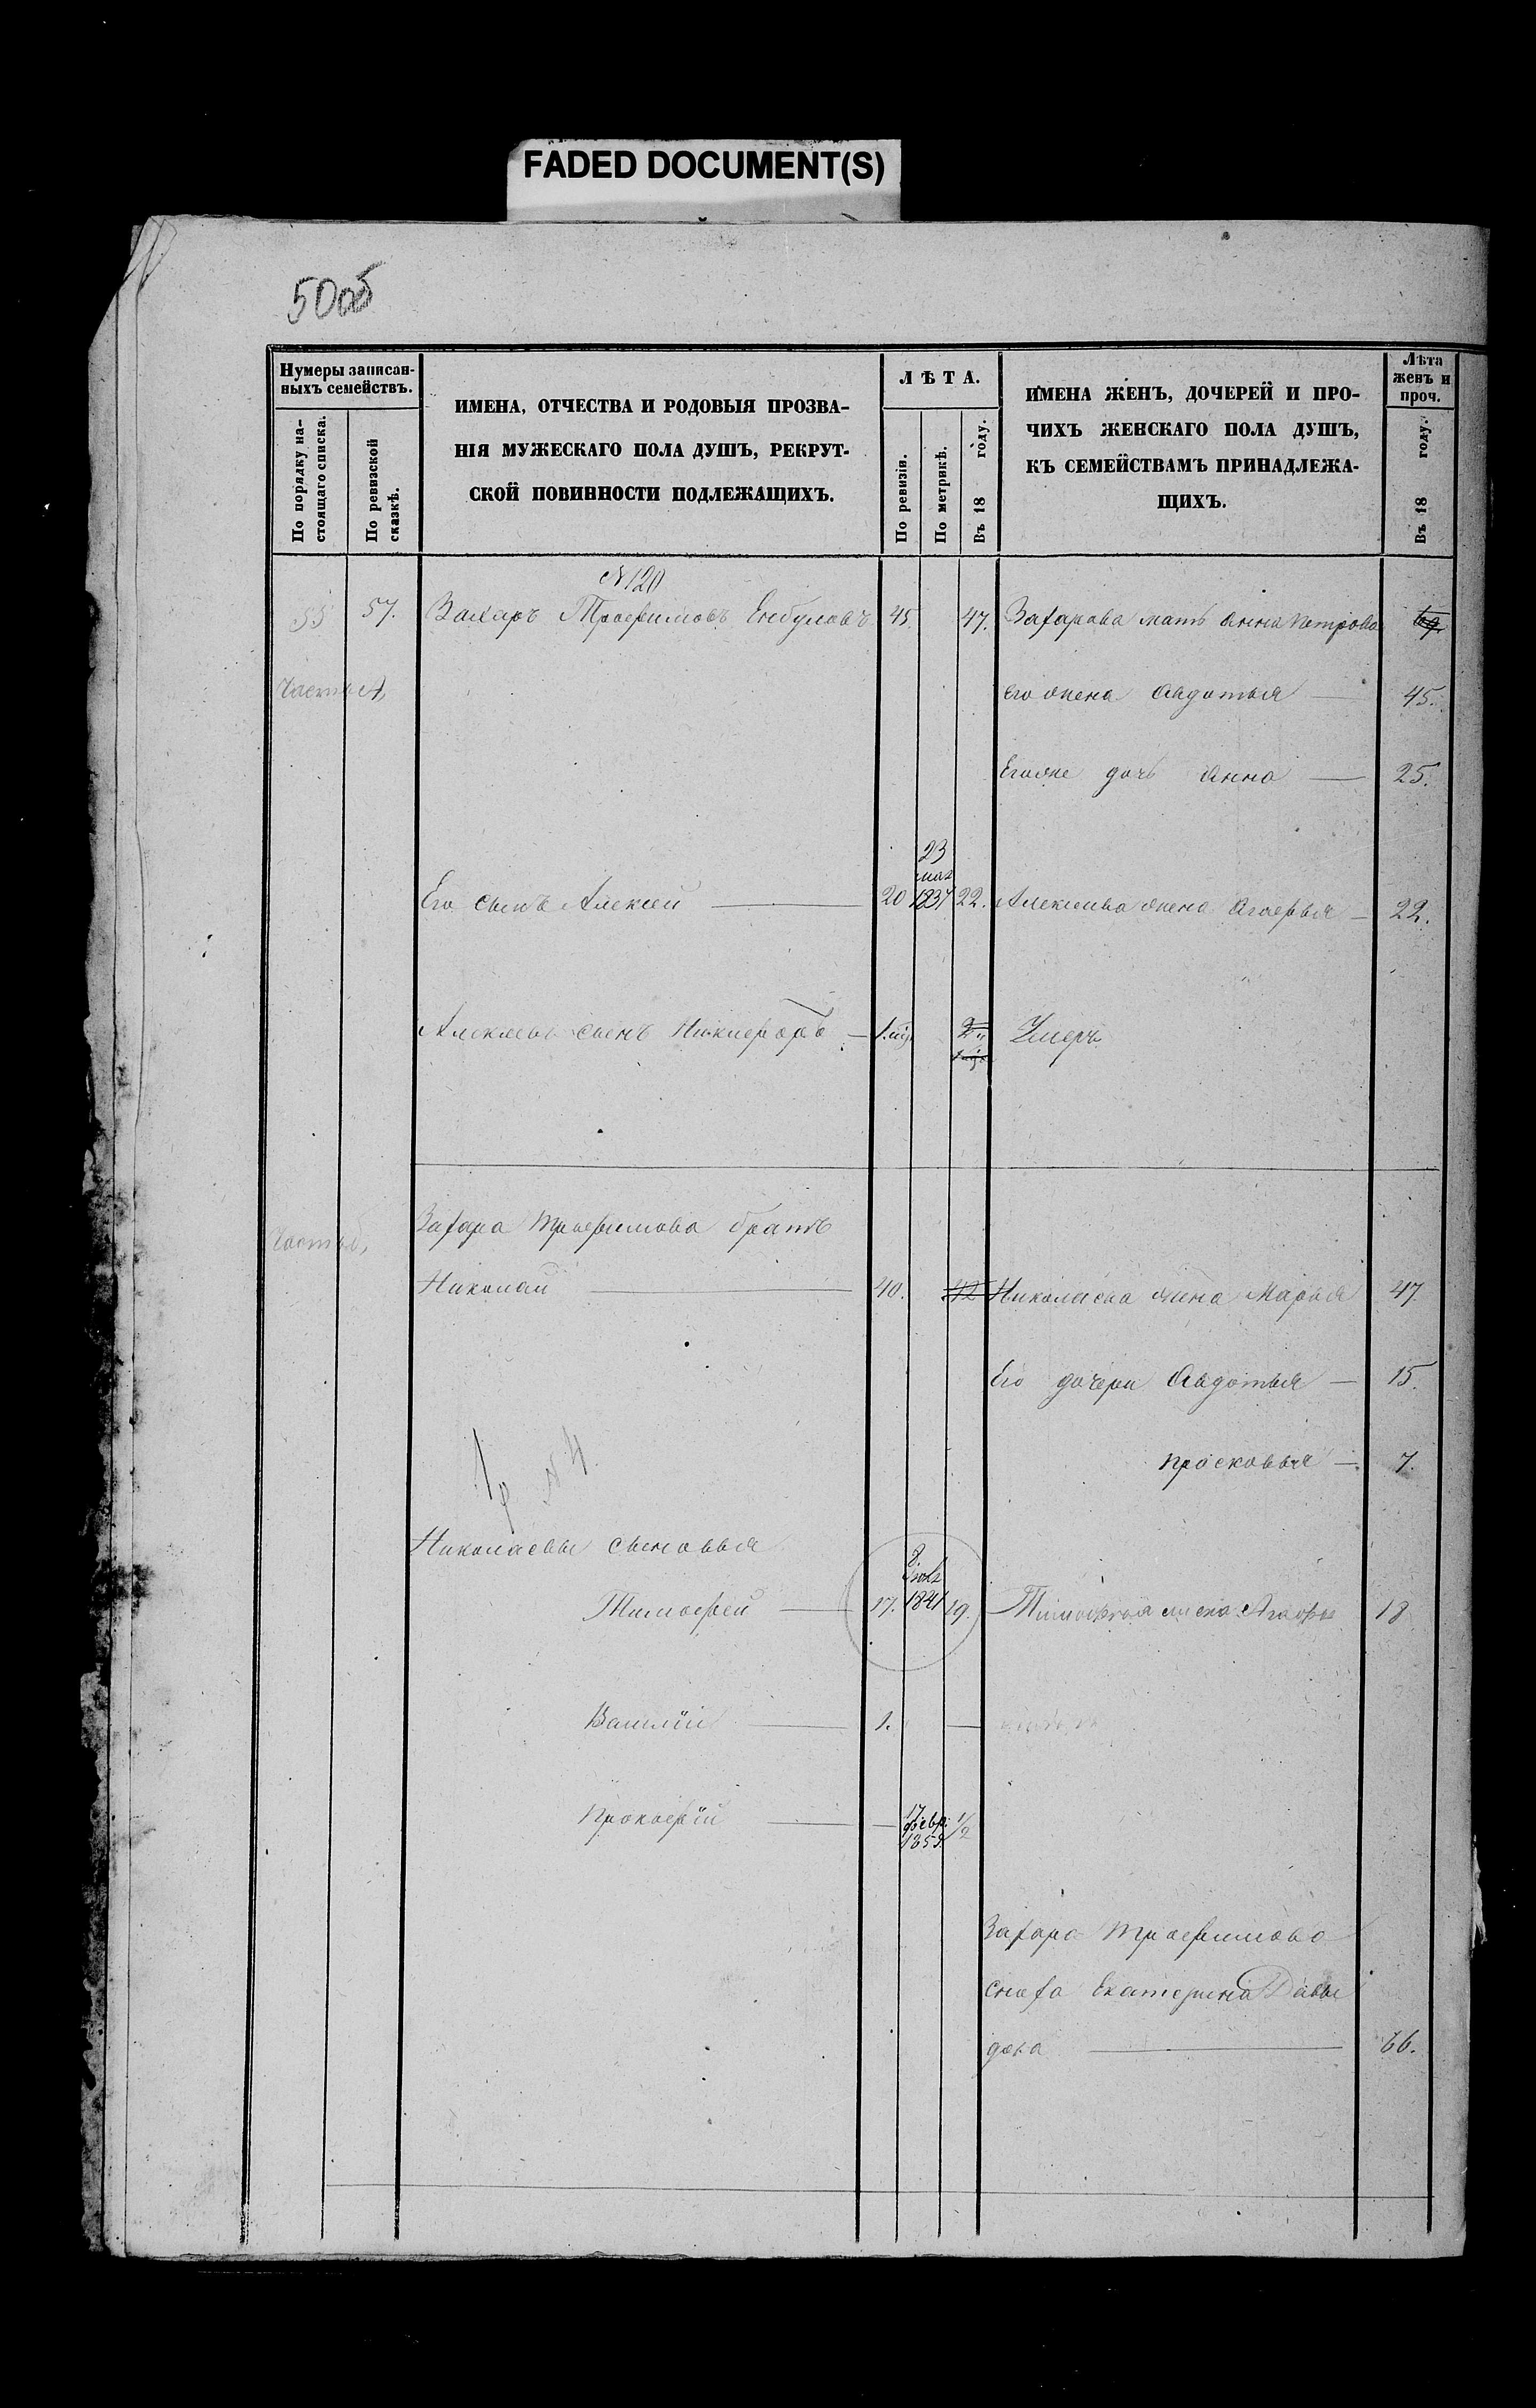 FADED DOCUMENT(S)
50об
Нумеры записан-
ныхъ семействъ.
По порядку на-
стоящаго списка.
По ревизской
сказкѣ.
ИМЕНА, ОТЧЕСТВА И РОДОВЫЯ ПРОЗВА-
НІЯ МУЖЕСКАГО ПОЛА ДУШЪ, РЕКРУТ-
СКОЙ ПОВИННОСТИ ПОДЛЕЖАЩИХЪ.
ЛѢТА.
По ревизіи.
По метрикѣ.
Въ 18 году.
ИМЕНА ЖЕНЪ, ДОЧЕРЕЙ И ПРО-
ЧИХЪ ЖЕНСКАГО ПОЛА ДУШЪ,
КЪ СЕМЕЙСТВАМЪ ПРИНАДЛЕЖА-
ЩИХЪ.
Лѣта
женъ и
проч.
Въ 18 году.
N 120
57. Захаръ Трофимовъ 45 47. Захарова мать Анна Петрова
Часть А, Его жена Авдотья — 45.
Егоже дочь Анна — 25.
23
мая
Его сынъ Алексей — 20 1837 22. Алексеева жена Агафья — 22.
Алексеевъ сынъ Никифоръ — 2 Умеръ
Часть б, Захара Трофимова братъ
Николай — 40. 42 Николаева жена Марья 47
Его дочери Авдотья — 15.
Просковья — 7.
N 4.
Николаевы сыновья
8.
Тимофей — 17. 1841 19. Тимофея жена Агафья 18
Василій — 1. —
17
февр.
Прокофій — — 1859 1/2
Захара Трофимова
сноха Екатерина Давы
дова — 66.